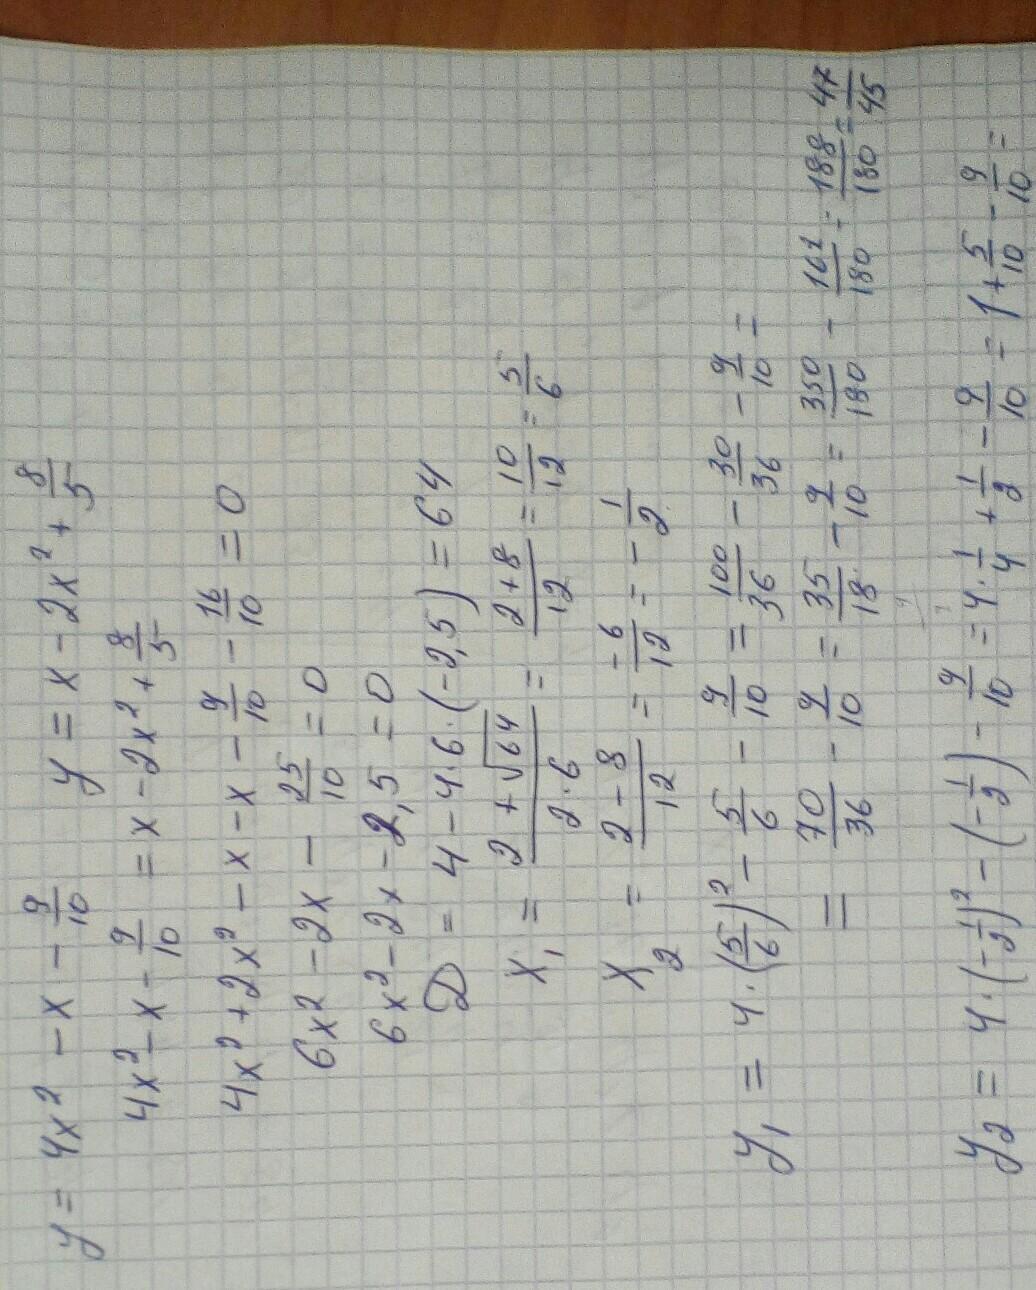 y = 4x² - x - 9/10   y = x - 2x² + 8/5
4x² - x - 9/10 = x - 2x² + 8/5
4x² + 2x² - x - x - 9/10 - 16/10 = 0
6x² - 2x - 25/10 = 0
6x² - 2x - 2,5 = 0
D = 4 - 4·6·(-2,5) = 64
x₁ = (2 + √64)/(2·6) = (2 + 8)/12 = 10/12 = 5/6
x₂ = (2 - 8)/12 = -6/12 = - 1/2
y₁ = 4·(5/6)² - 5/6 - 9/10 = 100/36 - 30/36 - 9/10 =
= 70/36 - 9/10 = 35/18 - 9/10 = 350/180 - 162/180 = 188/180 = 47/45
y₂ = 4·(-1/2)² - (-1/2) - 9/10 = 4·1/4 + 1/2 - 9/10 = 1 + 5/10 - 9/10 =